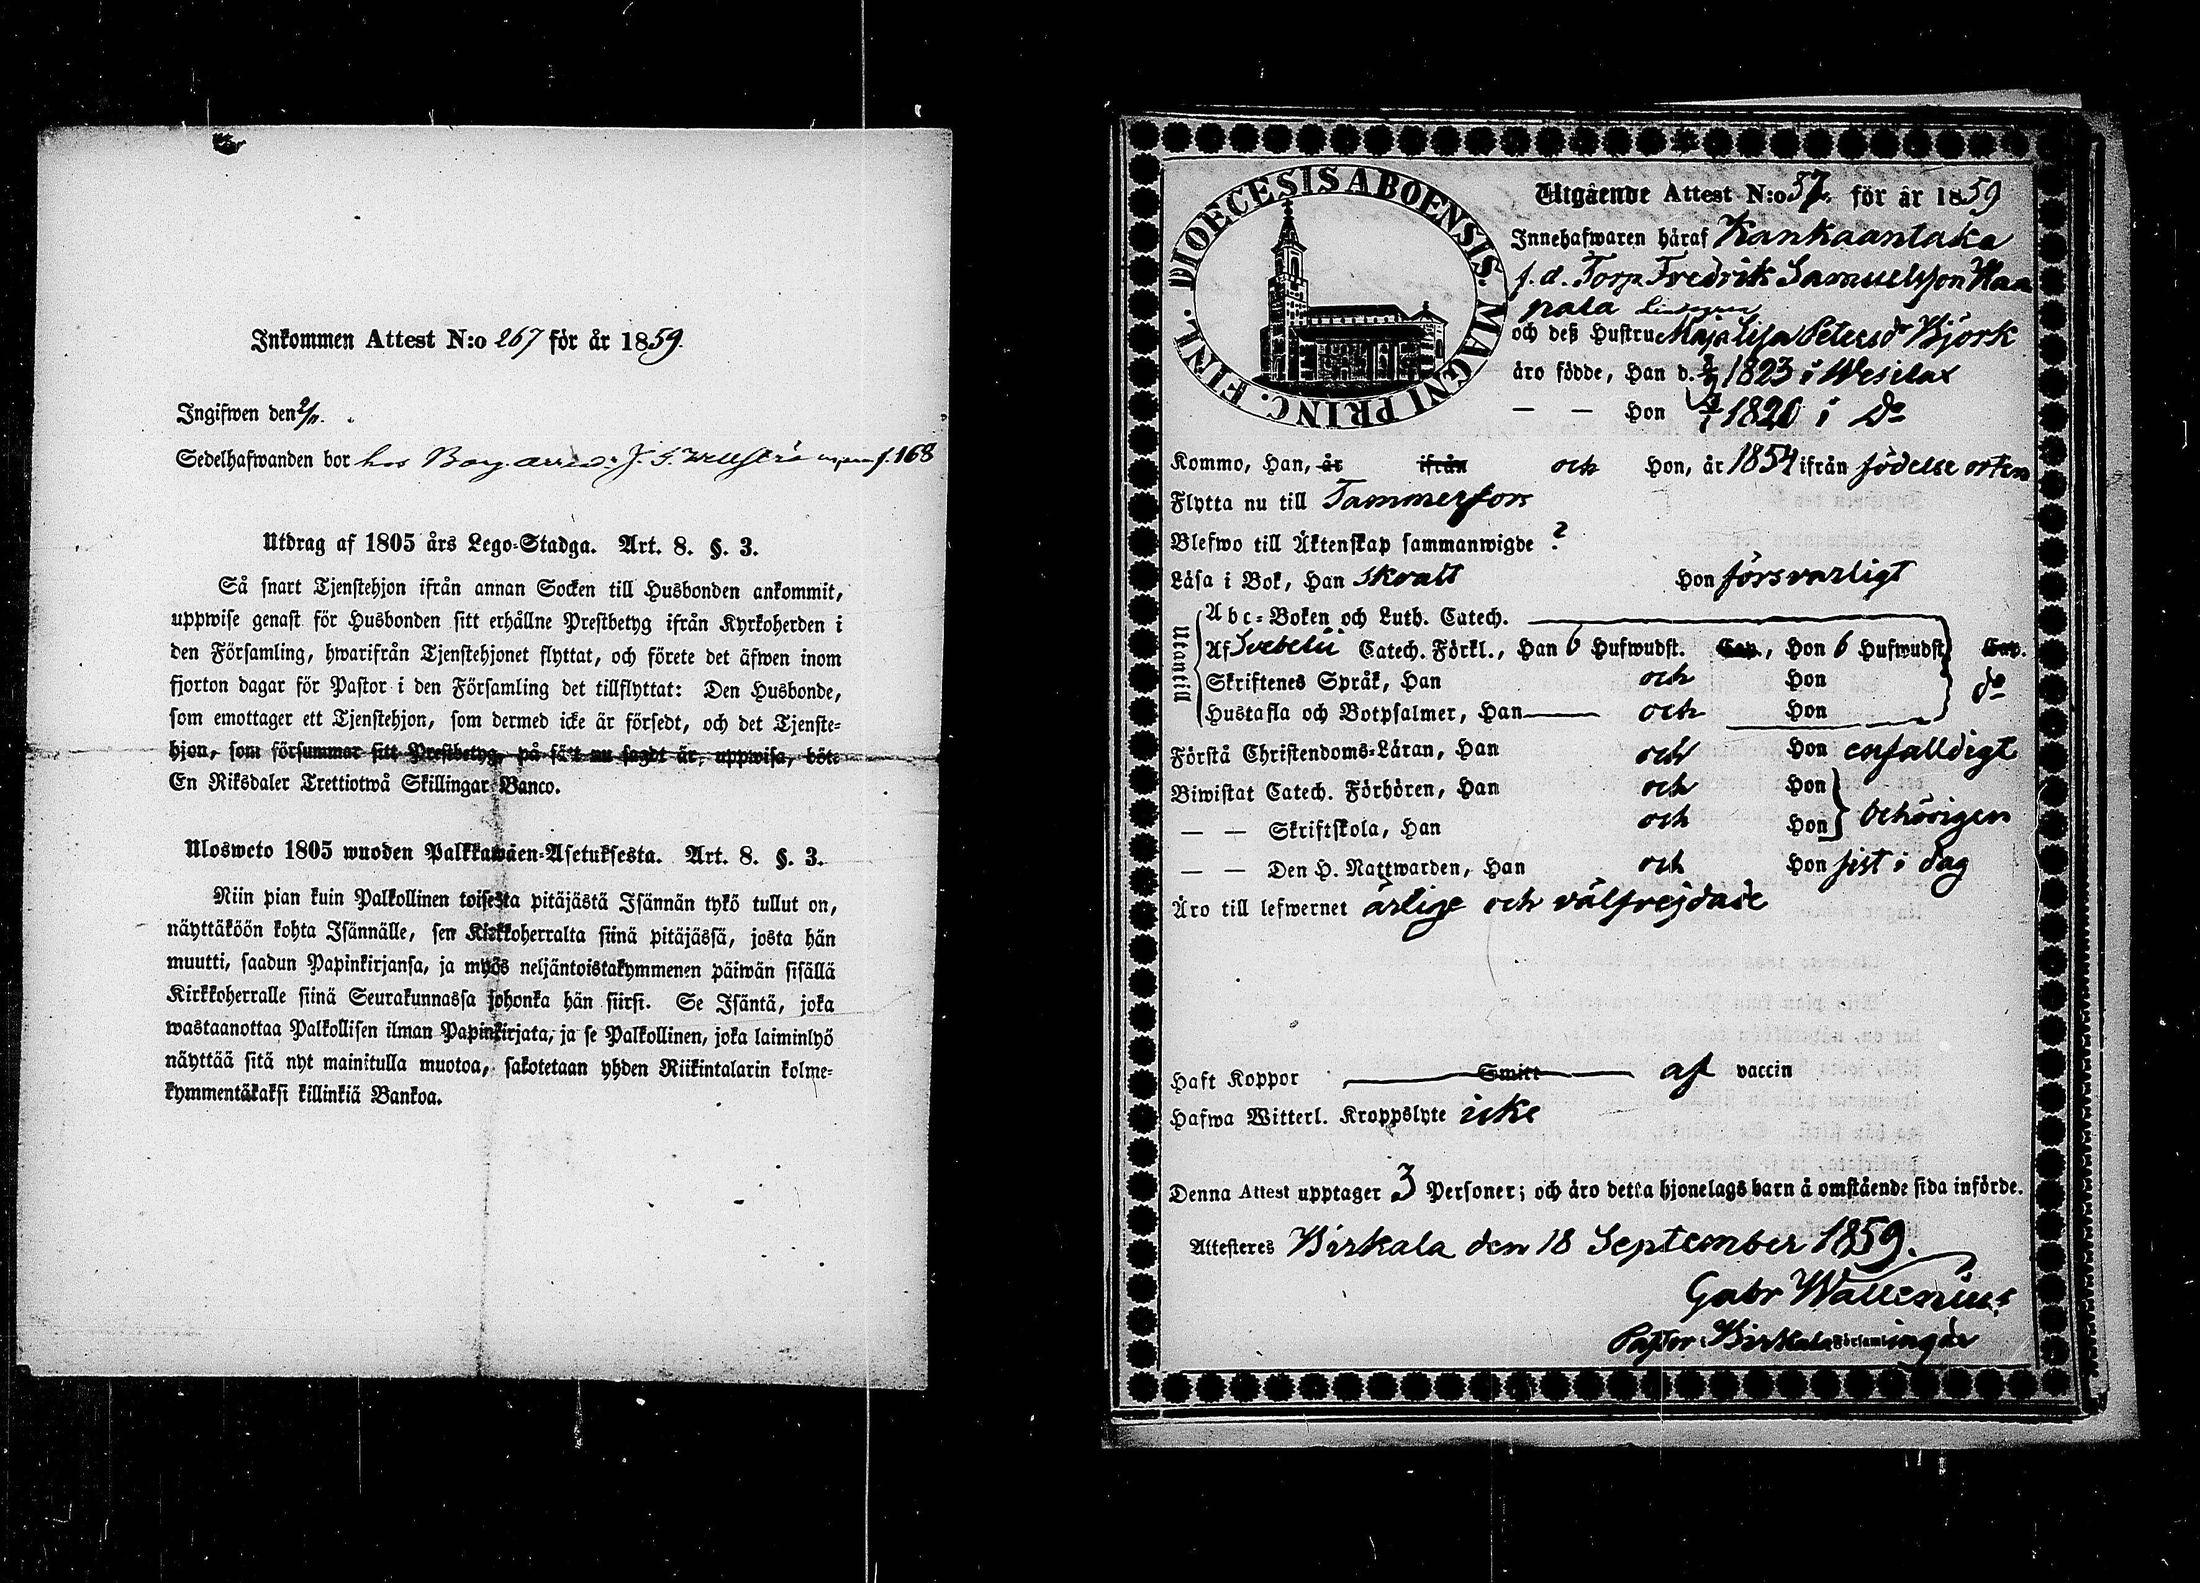 Inkommen Attest N:o 267 för år 1859.
Ingifwen den 2/11.
Sedelhafwanden bor hos J. f. 168
Utdrag af 1805 års Lego-Stadga. Art. 8. §. 3.
Så snart Tjenstehjon ifrån annan Socken till Husbonden ankommit,
uppwise genast för Husbonden sitt erhållne Prestbetyg ifrån Kyrkoherden i
den Församling, hwarifrån Tjenstehjonet flyttat, och förete det äfwen inom
fjorton dagar för Pastor i den Församling det tillflyttat: Den Husbonde,
som emottager ett Tjenstehjon, som dermed icke är försedt, och det Tjenste-
hjon, som försummar sitt Prestbetyg, på sätt nu sagdt är, uppwisa, böte
En Riksdaler Trettiotwå Skillingar Banco.
Ulosweto 1805 wuoden Palkkawäen-Asetuksesta. Art. 8. §. 3.
Niin pian kuin Palkollinen toisesta pitäjästä Isännän tykö tullut on,
näyttäköön kohta Isännälle, sen Kirkkoherralta siinä pitäjässä, josta hän
muutti, saadun Papinkirjansa, ja myös neljäntoistakymmenen päiwän sisällä
Kirkkoherralle siinä Seurakunnassa johonka hän siirsi. Se Isäntä, joka
wastaanottaa Palkollisen ilman Papinkirjata, ja se Palkollinen, joka laiminlyö
näyttää sitä nyt mainitulla muotoa, sakotetaan yhden Riikintalarin kolme-
kymmentäkaksi killinkiä Bankoa.
DIOECESIS ABOENSIS. MAGNI PRINC. FINL.
Utgående Attest N:o 57. för år 1859
Innehafwaren häraf Kankaantaka
f. d. Torp. Fredrik Samuelsson Haa
pala
och deß Hustru Maja Lisa Petersdr Björk
äro födde, Han d. 1823 i Wesilax
— — Hon 1820 i do
Kommo, Han, år ifrån och Hon, år 1854 ifrån födelse orten
Flytta nu till Tammerfors
Blefwo till Äktenskap sammanwigde ?
Läsa i Bok, Han skralt Hon försvarligt
Utantill
Abc-Boken och Luth. Catech.
Af Svebelii Catech. Förkl., Han 6 Hufwudst. Cap., Hon 6 Hufwudst. Cap.
Skriftenes Språk, Han och Hon do
Hustafla och Botpsalmer, Han och Hon
Förstå Christendoms-Läran, Han och Hon enfalldigt
Biwistat Catech. Förhören, Han och Hon
— — Skriftskola, Han och Hon behörigen
— — Den H. Nattwarden, Han och Hon sist i dag
Äro till lefwernet ärlige och välfrejdade
Haft Koppor Smitt af vaccin
Hafwa Witterl. Kroppslyte icke
Denna Attest upptager 3 Personer; och äro detta hjonelags barn å omstående sida införde.
Attesteres Birkala den 18 September 1859.
Gabr Wallenius
Pastor i Birkala Församlingar